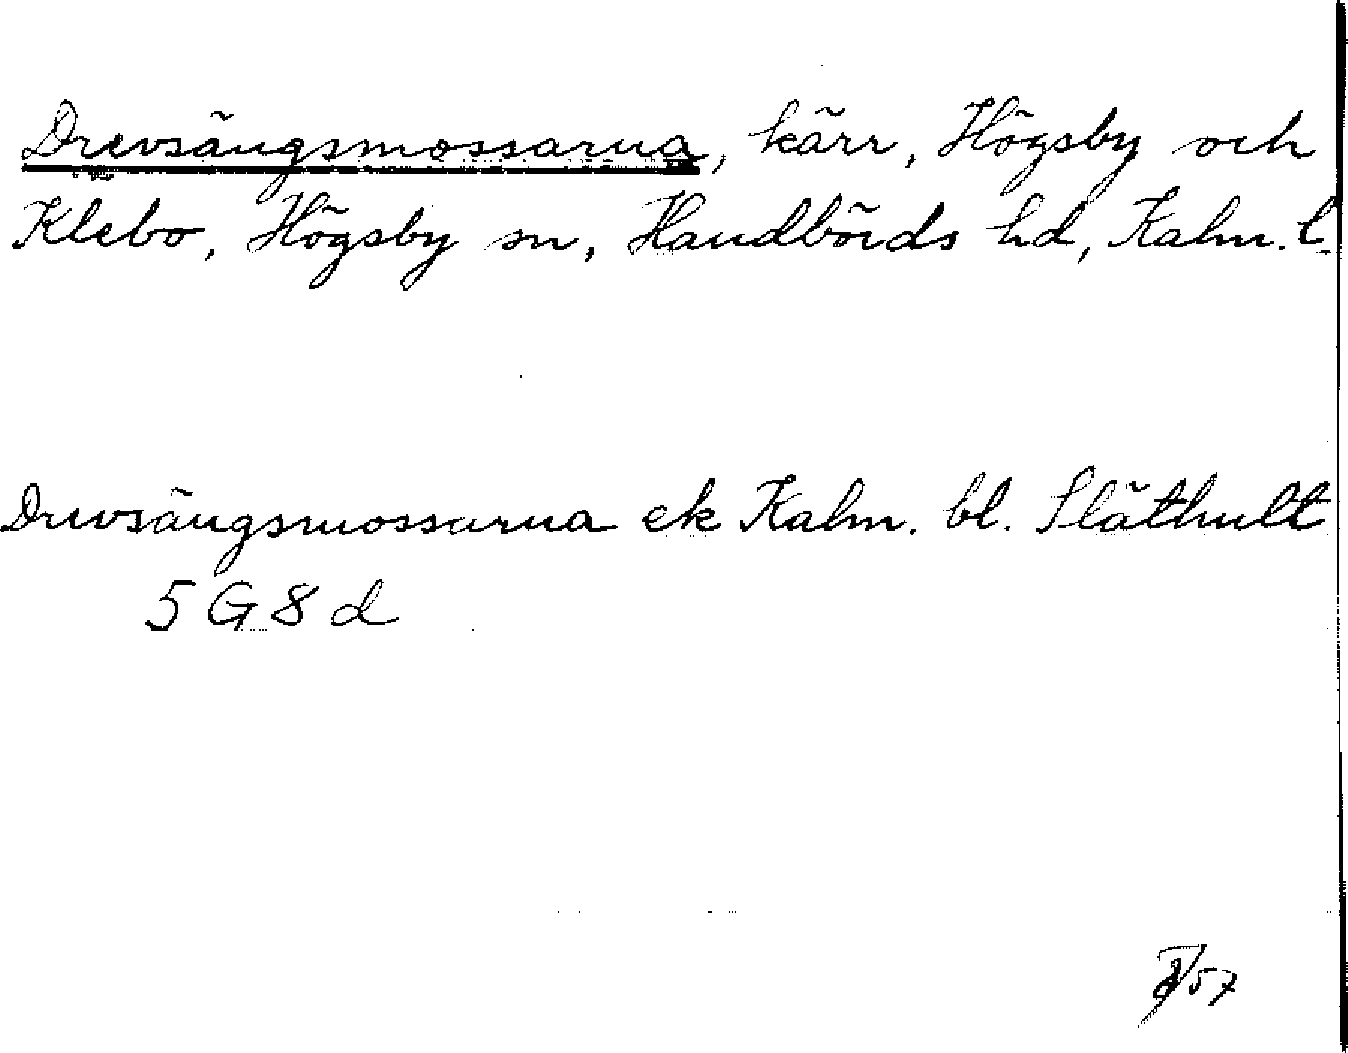 Drevsängsmossarna, kärr, Högsby och
Klebo, Högsby sn, Handbörds hd, Kalm. l.
Drevsängsmossarna ek Kalm. bl. Släthult
5 G 8 d
57